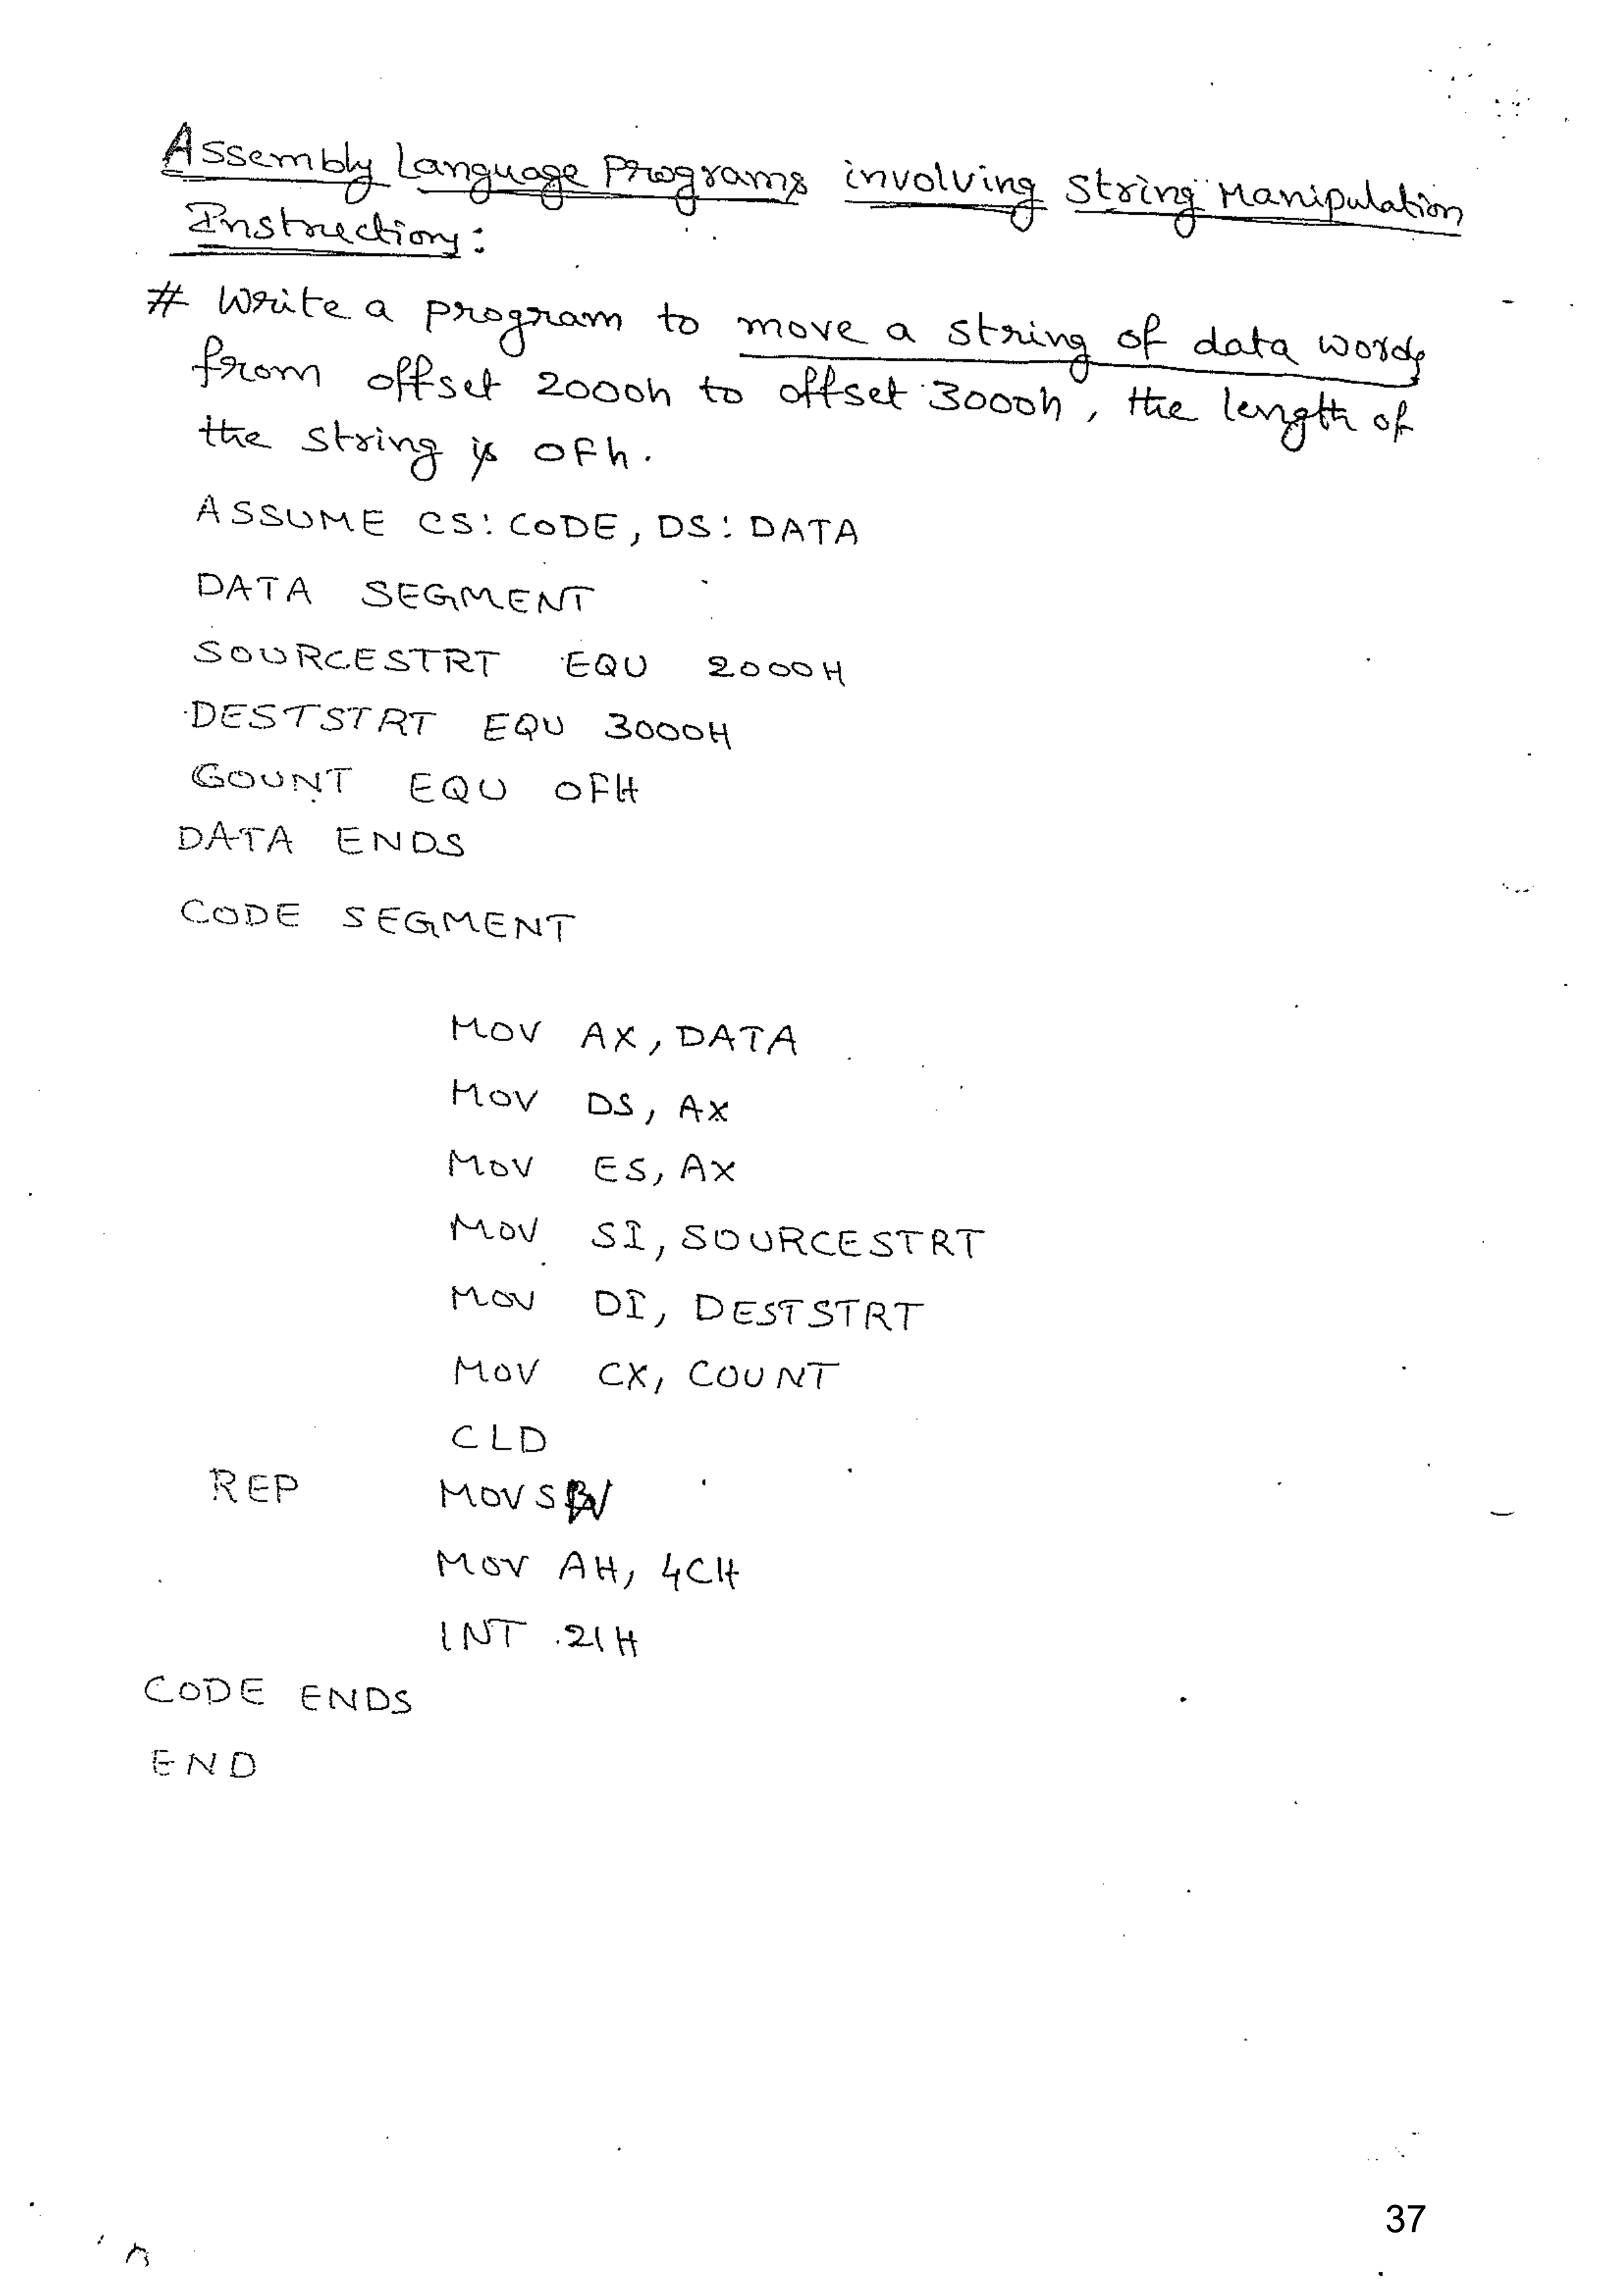 Assembly Language Programs involving String Manipulation
Instructions:
# Write a program to move a string of data words
from offset 2000h to offset 3000h, the length of
the string is 0Fh.
ASSUME CS: CODE, DS: DATA
DATA SEGMENT
SOURCESTRT EQU 2000H
DESTSTRT EQU 3000H
COUNT EQU 0FH
DATA ENDS
CODE SEGMENT
MOV AX, DATA
MOV DS, AX
MOV ES, AX
MOV SI, SOURCESTRT
MOV DI, DESTSTRT
MOV CX, COUNT
CLD
REP MOVSW
MOV AH, 4CH
INT 21H
CODE ENDS
END
37